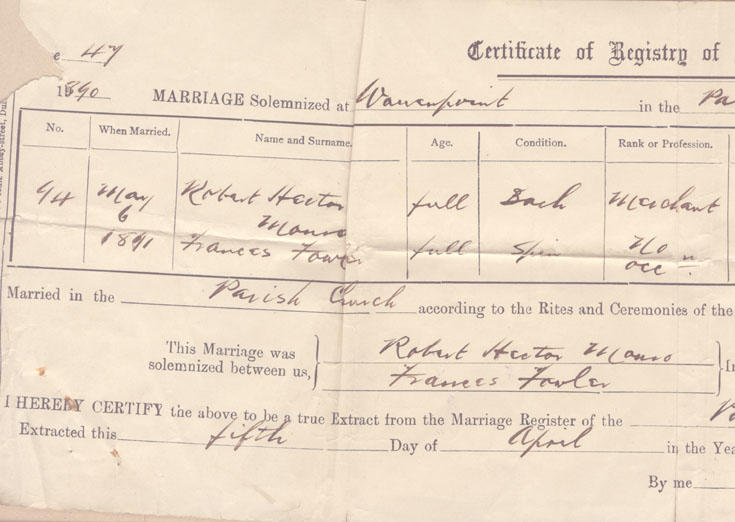 e 47
Certificate of Registry of
1890 MARRIAGE Solemnized at Warrenpoint in the Pa
No. When Married. Name and Surname. Age. Condition. Rank or Profession.
94 May 6 1891 Robert Hector Monro full Bach Merchant
Frances Fowler full Spin No occn.
Married in the Parish Church according to the Rites and Ceremonies of the
This Marriage was solemnized between us,
Robert Hector Monro
Frances Fowler
In
I HEREBY CERTIFY the above to be a true Extract from the Marriage Register of the
Extracted this fifth Day of April in the Yea
By me